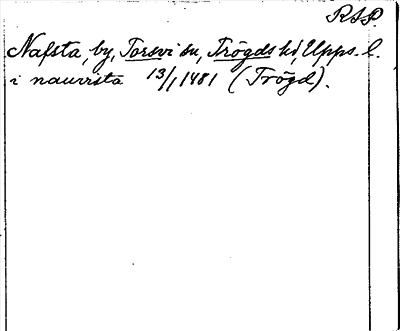 RSP.
Nafsta, by, Torsvi sn, Trögds hd, Upps. l.
i nauvista 13/1 1481 (Trögd).